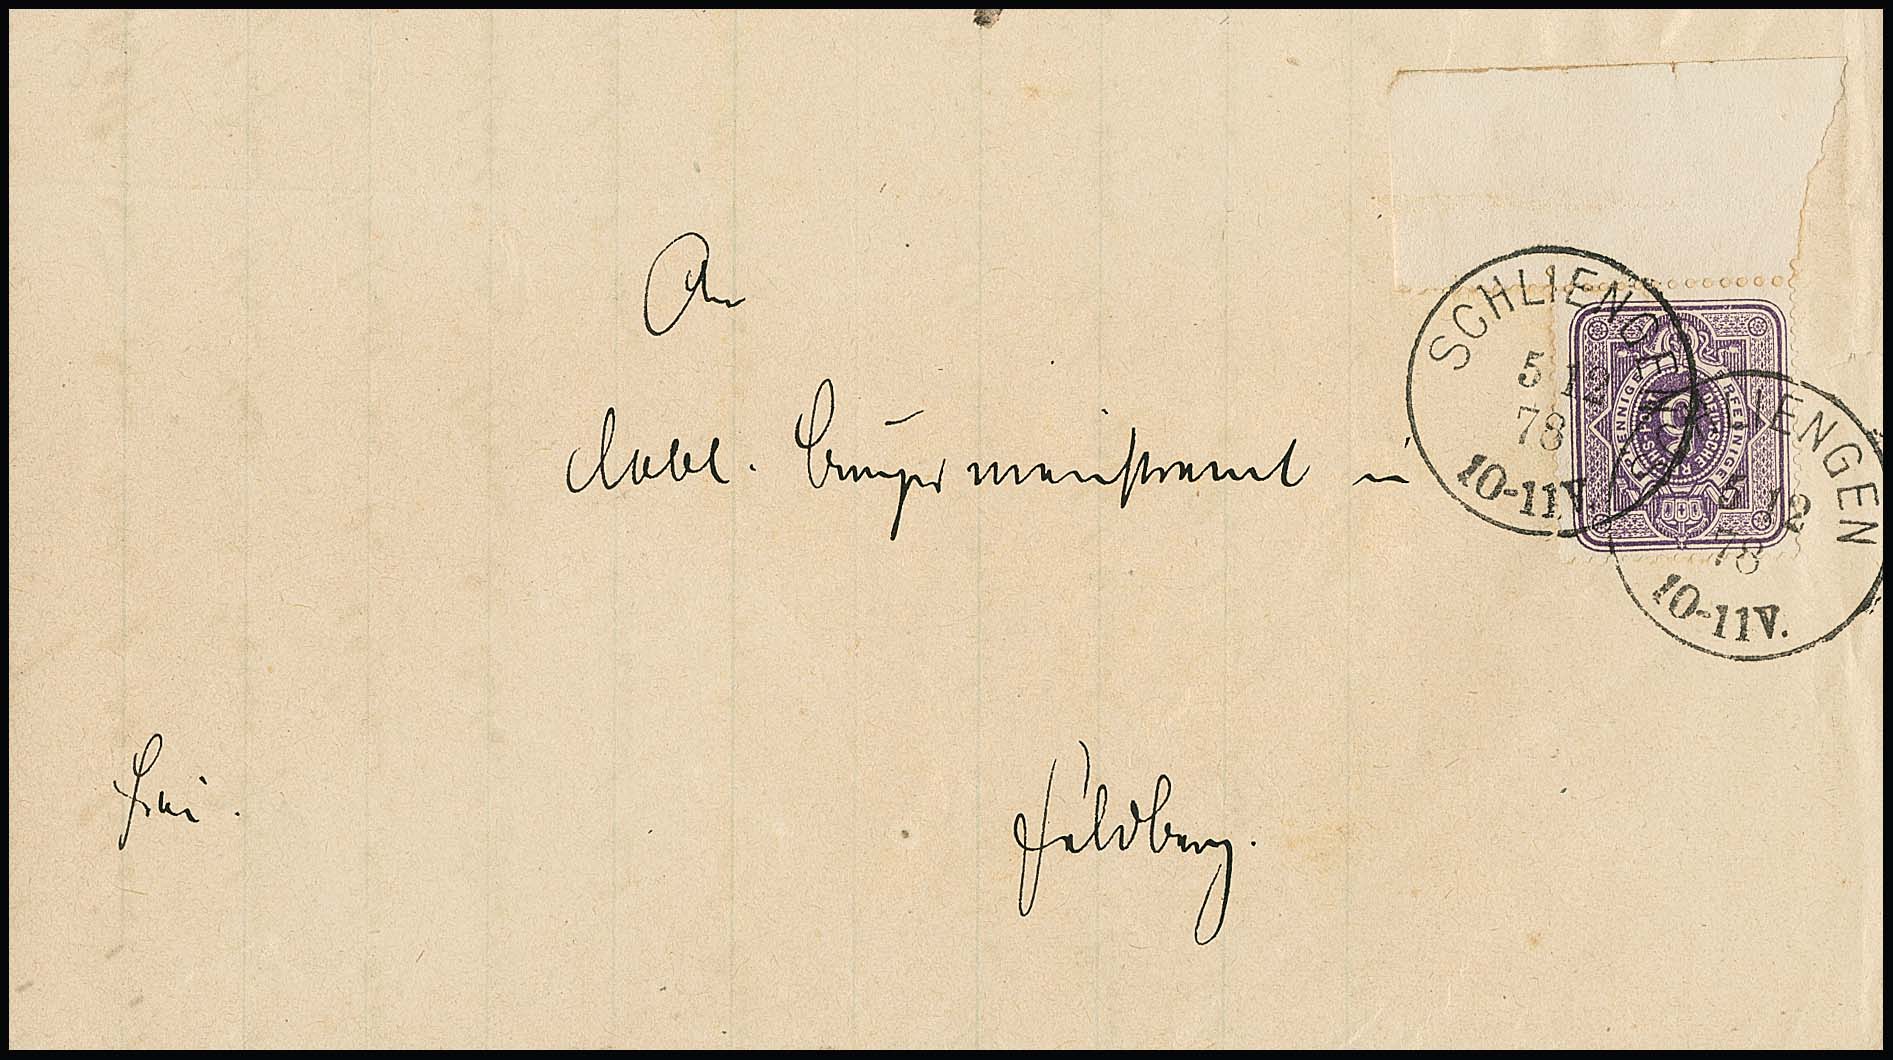 An
Wohll. Bürgermeisteramt in
Feldberg.
Frei.
SCHLIENGEN
5 12
78
10-11V.
SCHLIENGEN
5 12
78
10-11V.
5
PFENNIGE
PFENNIGE
DEUTSCHE REICHS-POST